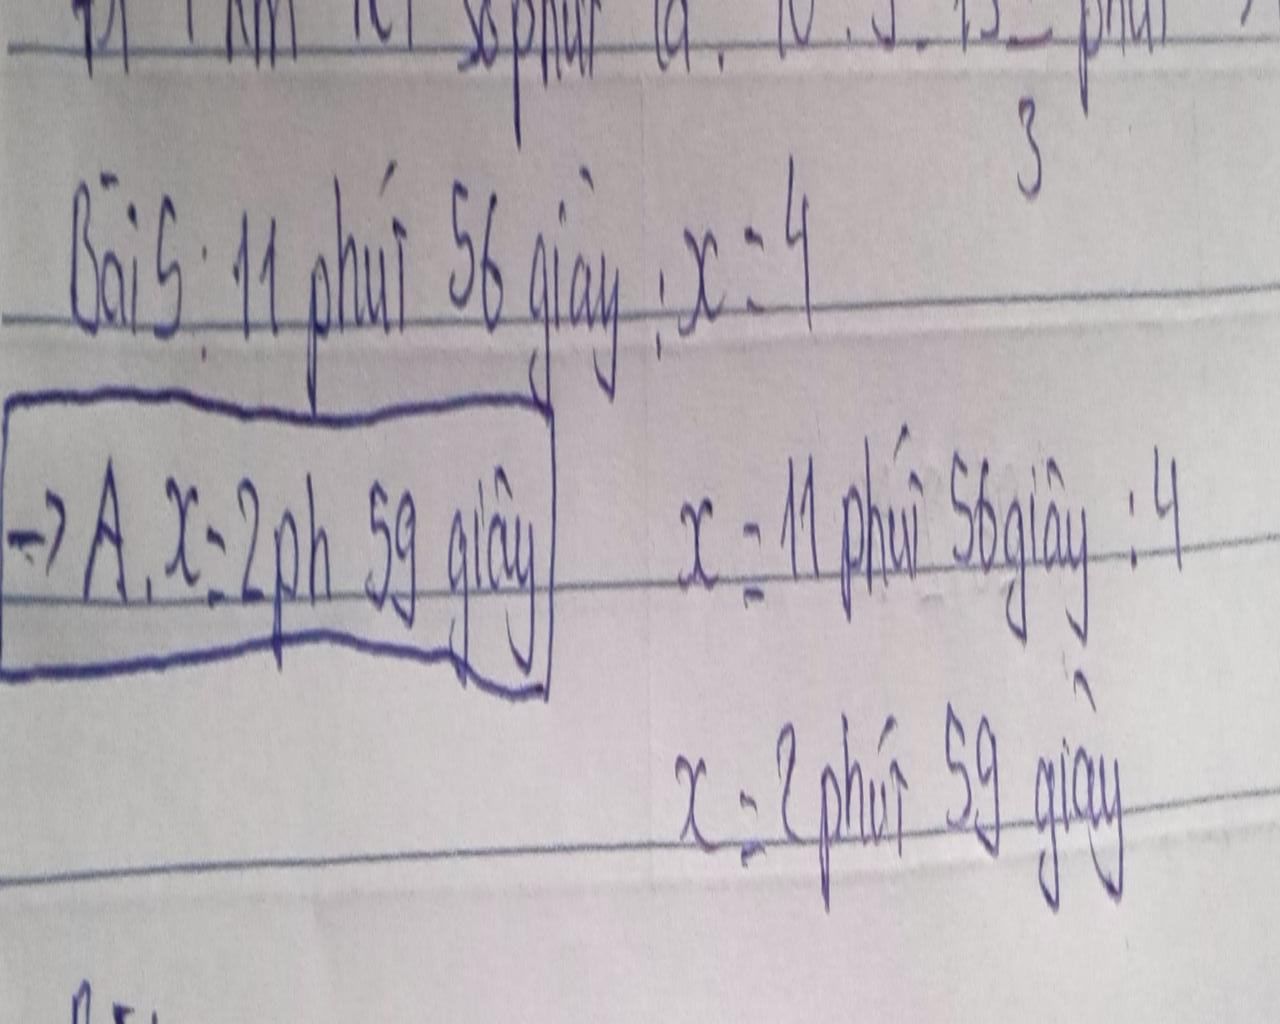 1 km số phút là: 10 : 3 = phút
3
Bài 5: 11 phút 56 giây : x = 4
x = 11 phút 56 giây : 4
→ A. x = 2ph 59 giây
x = 2 phút 59 giây